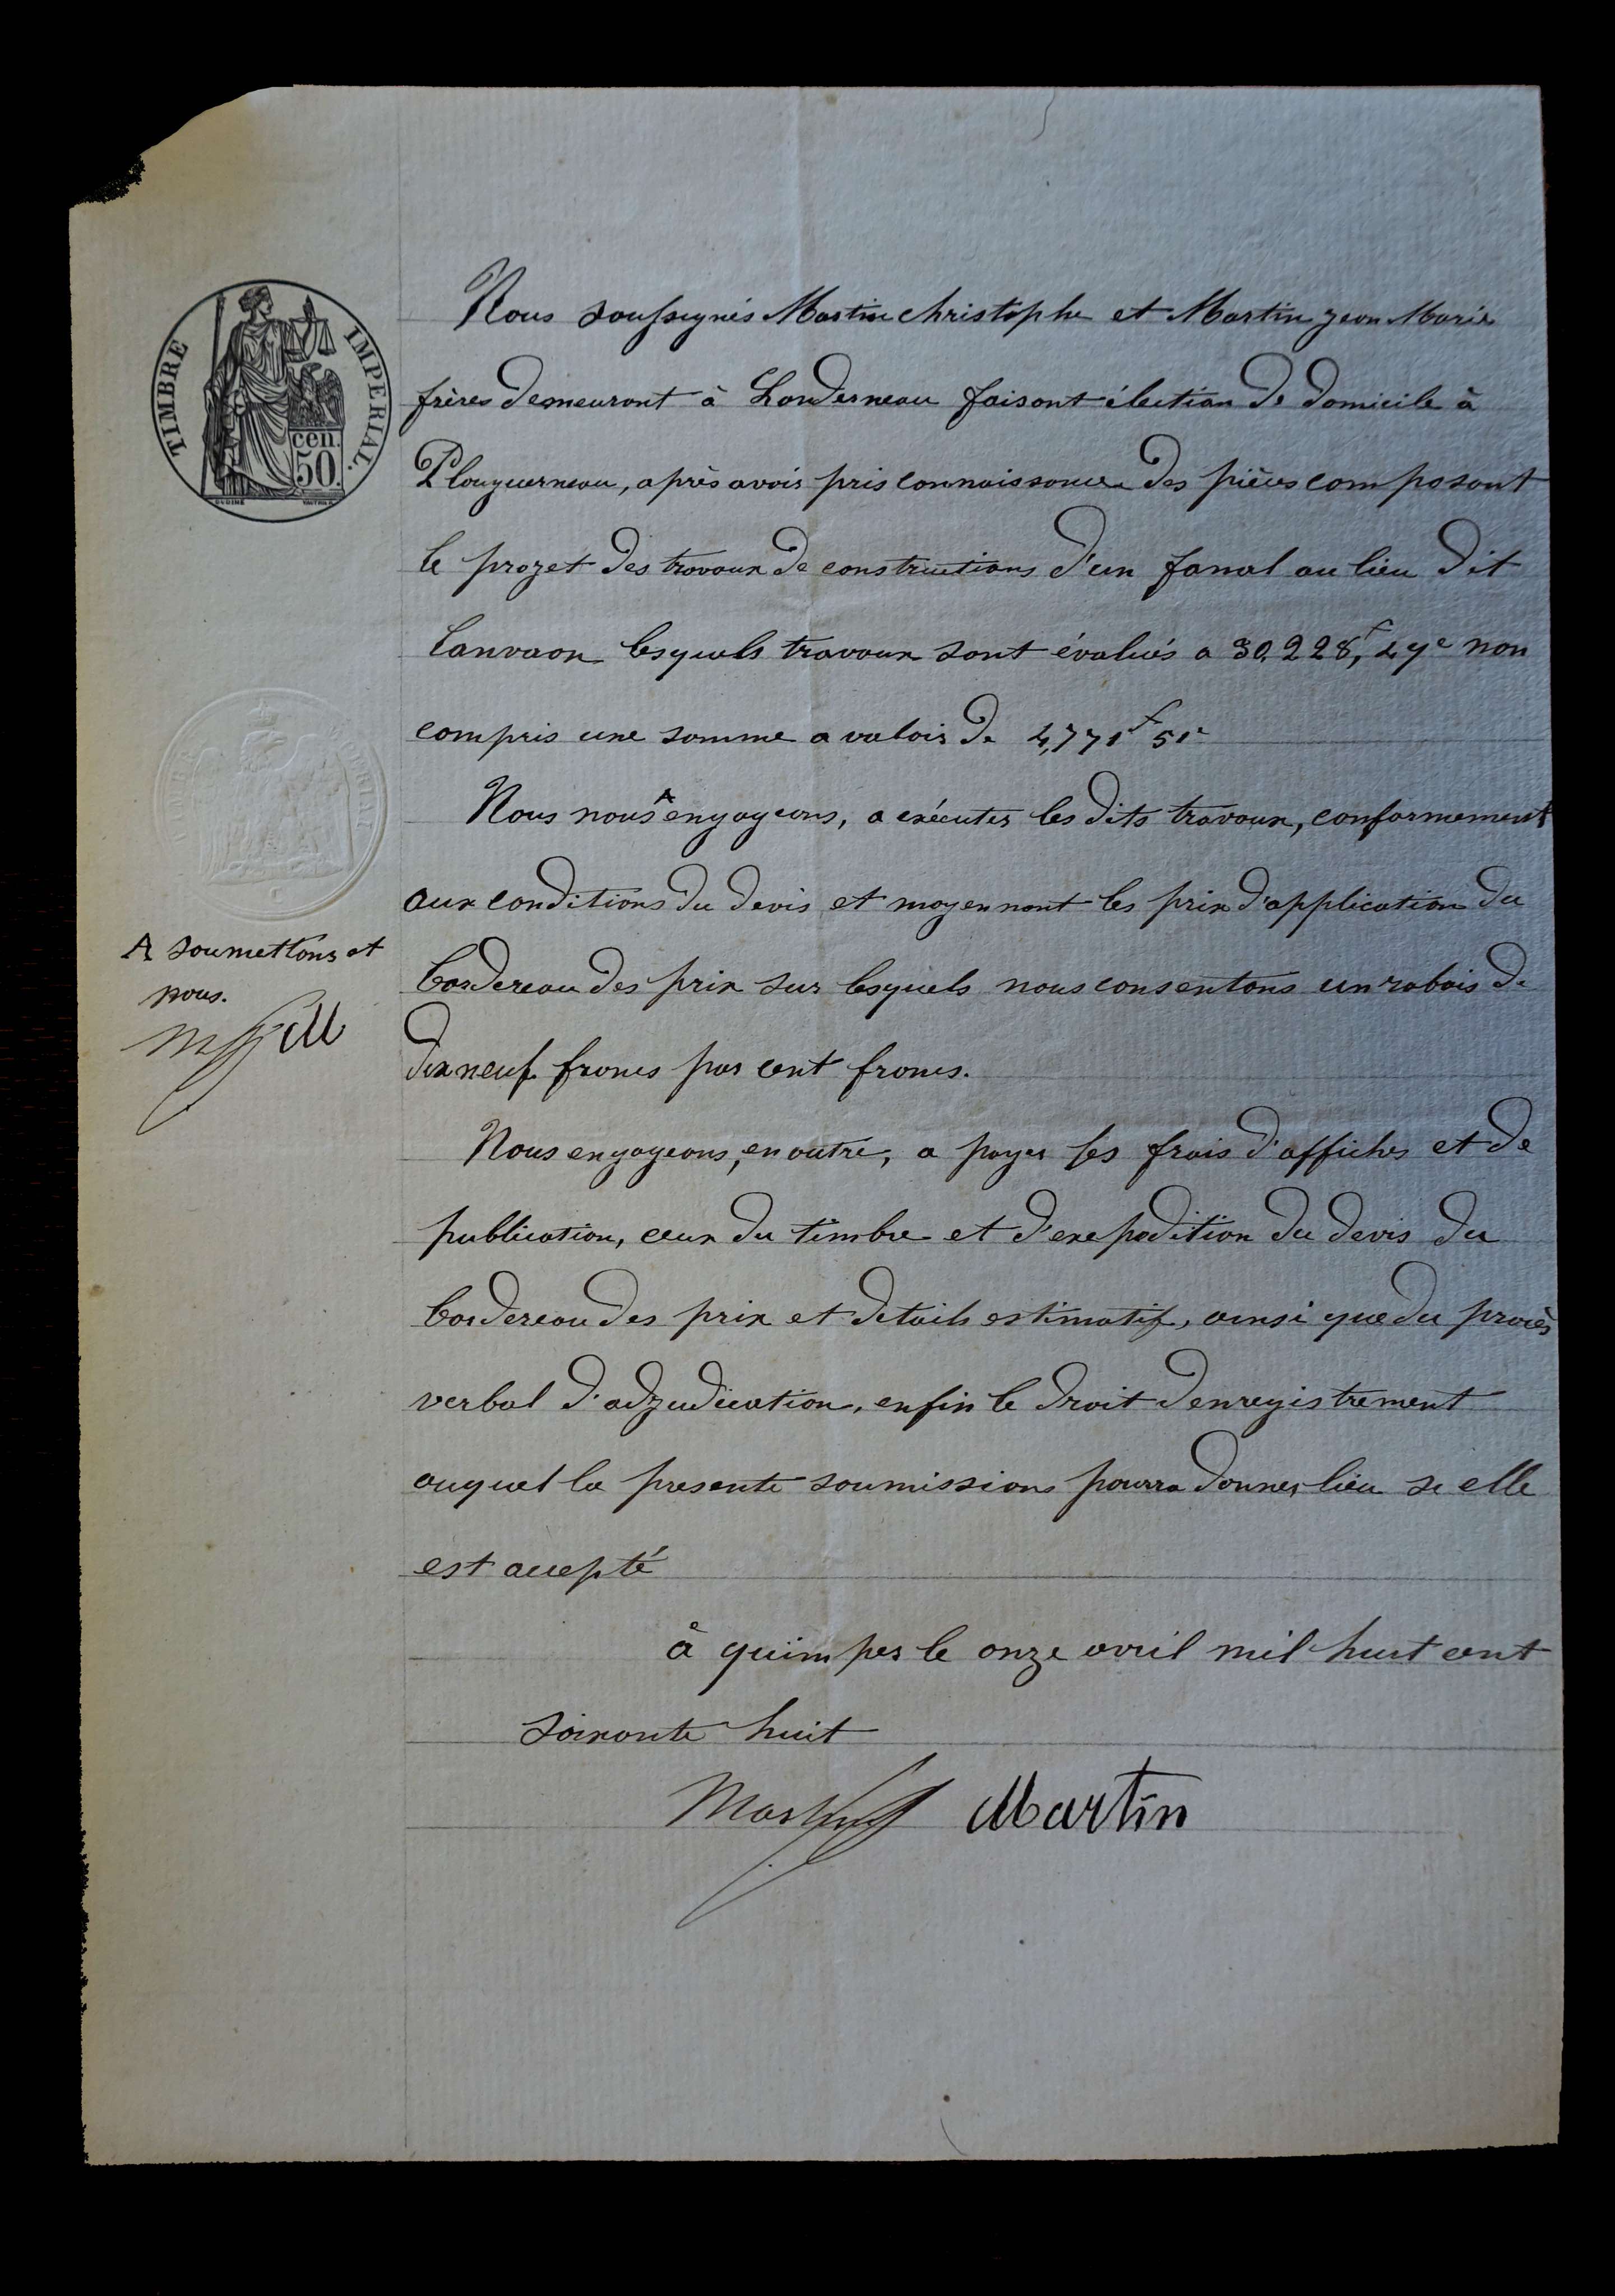 TIMBRE IMPÉRIAL.
cen.
50.
Nous soussignés Martin christophe et Martin jean Marie
frères demeurant à Landerneau faisant élection de domicile à
Plouguerneau, après avoir pris connaissance des pièces composant
le projet des travaux de constructions d'un fanal au lieu dit
Lanvaon lesquels travaux sont évalués a 30.228,f 49c non
compris une somme a valoir de 4,771f 51c
Nous nous A engageons, a exécuter les dits travaux, conformement
aux conditions du devis et moyennant les prix d'application du
bordereau des prix sur lesquels nous consentons un rabais de
dix neuf francs par cent francs.
Nous engageons, en outre, a payer les frais d'affiches et de
publication, ceux du timbre et d'exepodition du devis du
bordereau des prix et details estimatif, ainsi que du procès
verbal d'adjudication, enfin le droit d'enregistrement
auquel la presente soumissions pourra donner lieu si elle
est accepté
à quimper le onze avril mil huit cent
soixante huit
Martin Martin
A soumettons et
nous.